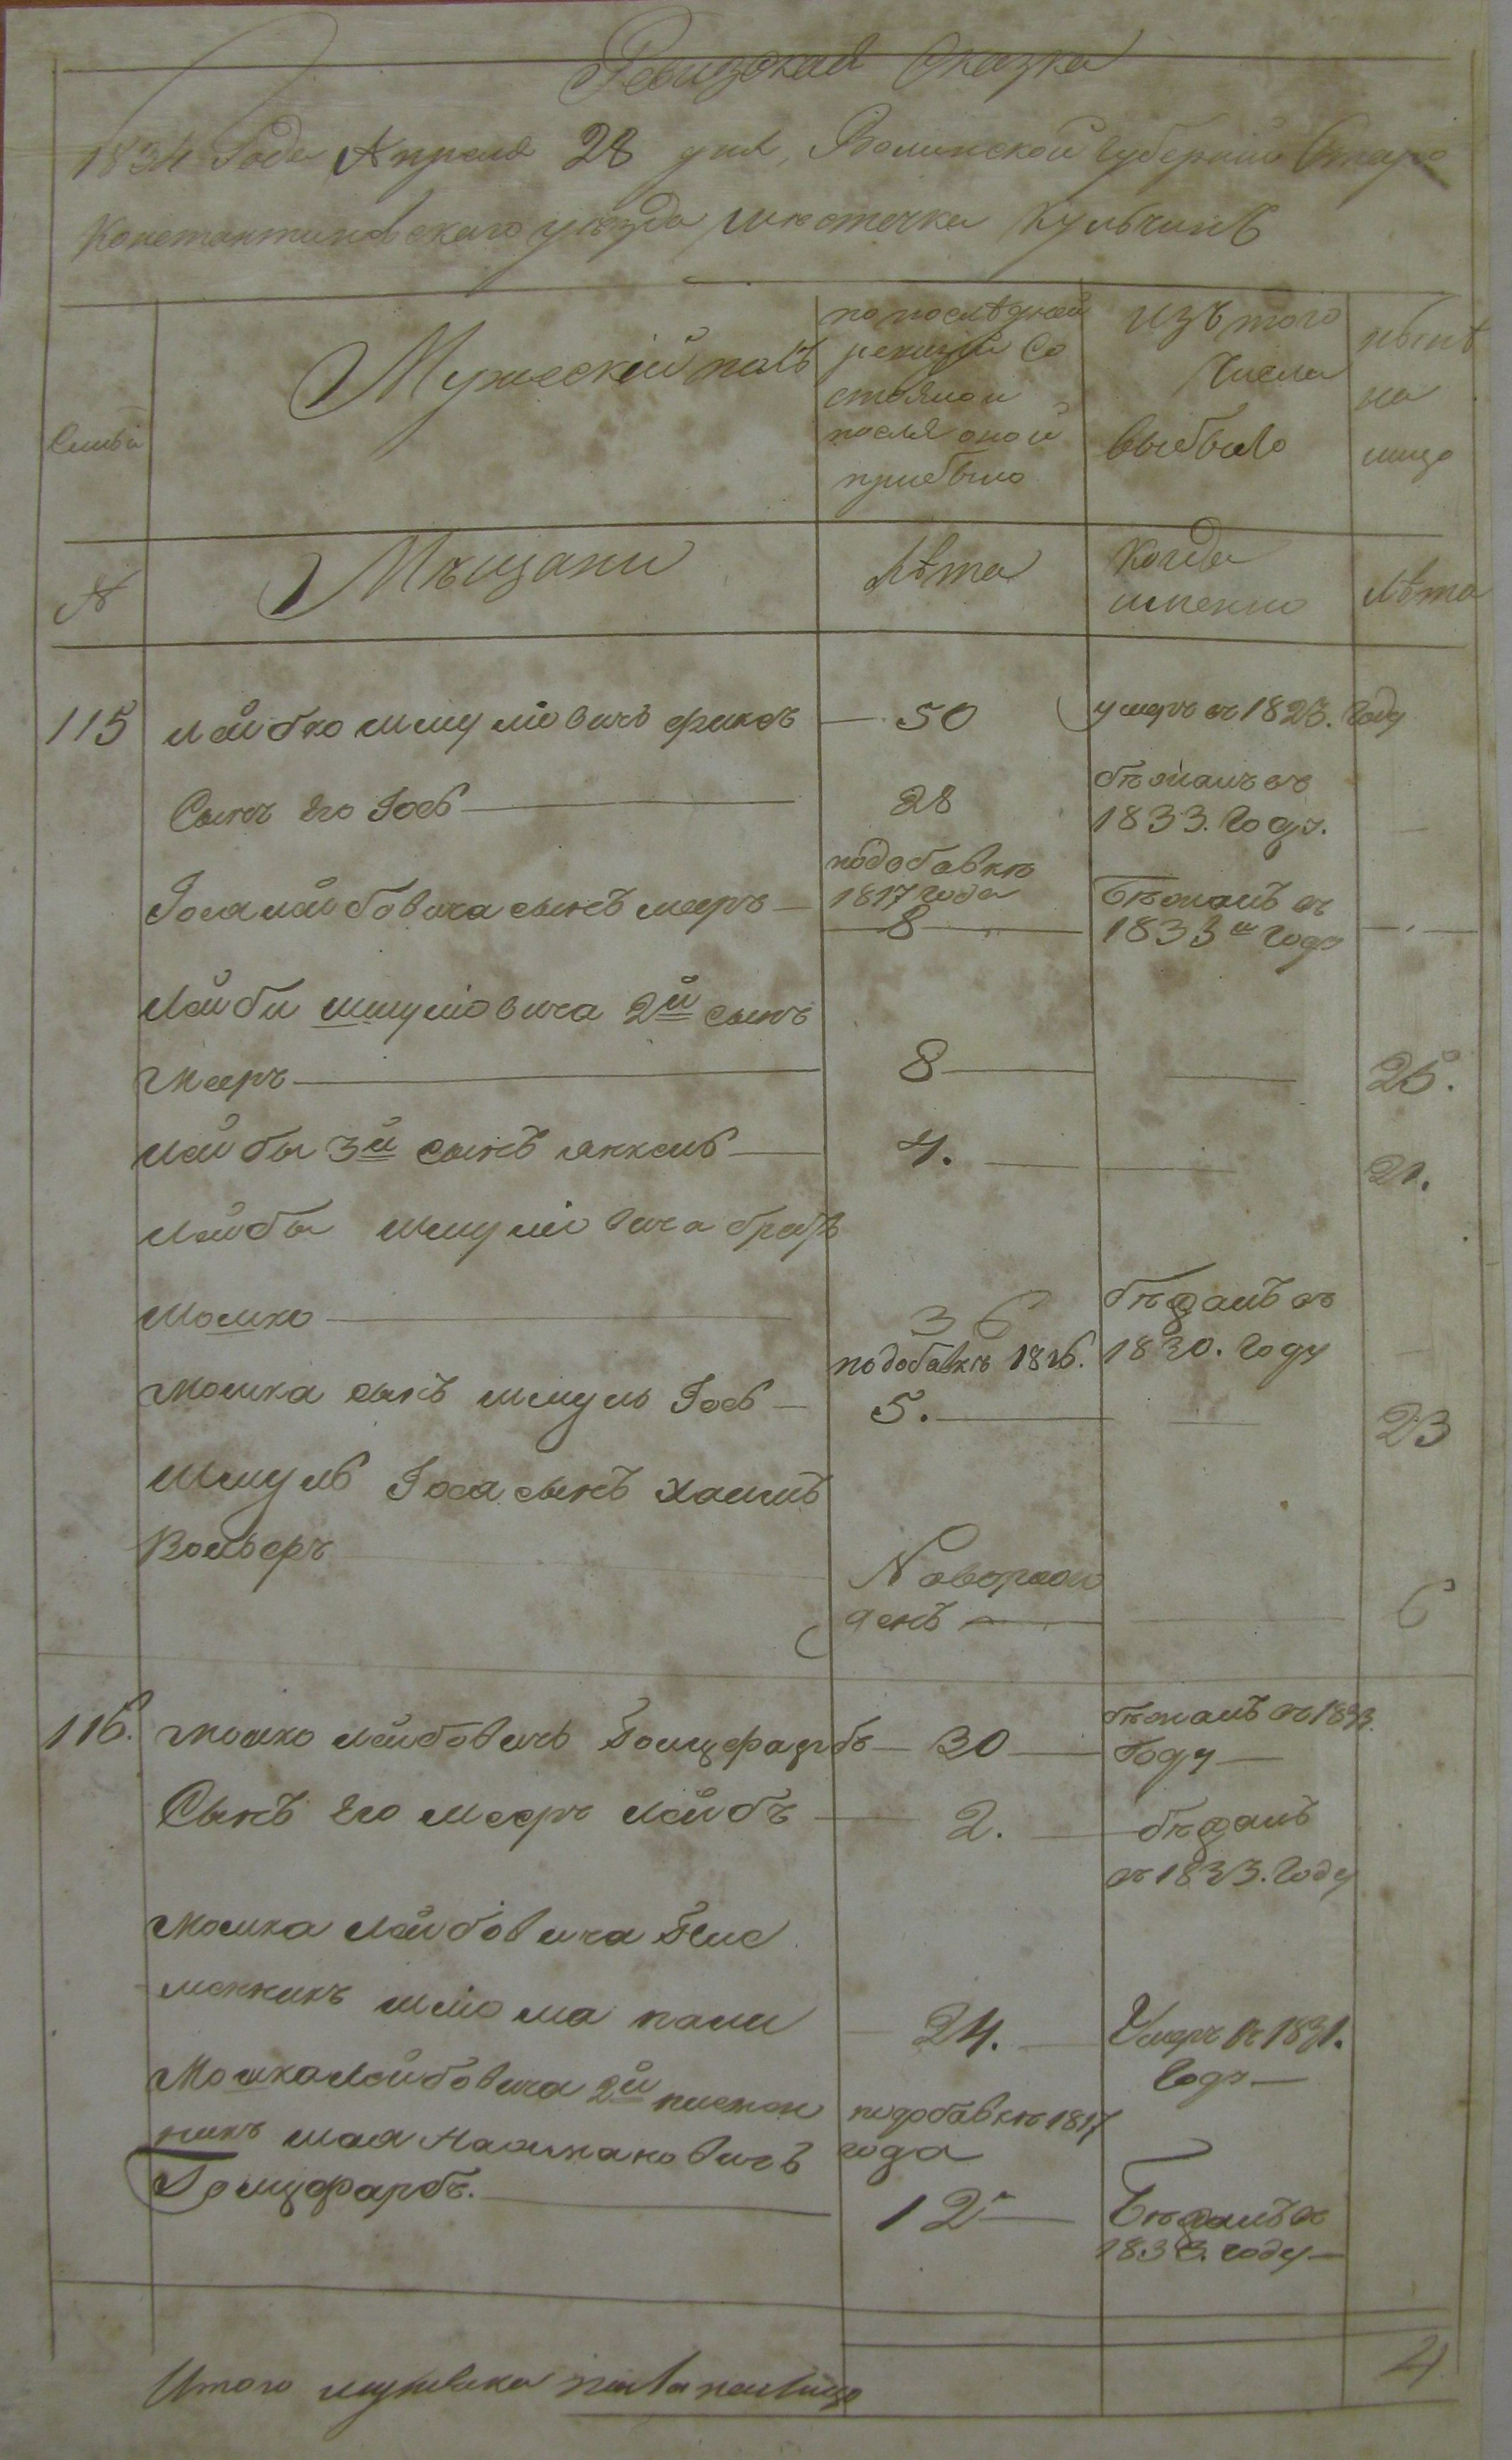 Ревизская Сказка
1834 Года Апреля 28 дня, Волинской губернии Старо
Константиновскаго уѣзда мѣстечка Кульчинъ
Семьи
Мужескій полъ
по послѣдней
ревизіи со
стояло и
послѣ оной
прибыло
изъ того
числа
выбыло
нынѣ
на
лицо
№
Мѣщани
Лѣта
Когда
именно
Лѣта
115 Лейбко Шмулiовичъ Фиксъ — 50 умеръ въ 1823. Году
Сынъ Его Іось — 28 бѣжалъ въ
1833. Году. —
Іося Лейбовича сынъ Мееръ — подобавкѣ
1817 года
8 Бѣжалъ въ
1833м Году —
Лейби Шмулiовича 2й сынъ
Мееръ — 8 — — 25.
Лейбы 3й сынъ Янкель — 4. — — 21.
Лейбы Шмулiовича братъ
Мошко — 36 бѣжалъ въ
1830. Году
Мошка сынъ Шмуль Іось — подобавкѣ 1816.
5. — — 23
Шмуль Іося сынъ Хаимъ
Вольфъ — Новорож
денъ — — 6
116. Мошко Лейбовичъ Гольцфарбъ — 30 — бѣжалъ въ 1833.
Году —
Сынъ Его Мееръ Лейбъ — 2. — бѣжалъ
въ 1833. Году
Мошка Лейбовича Пле
менникъ Шлiома — 24. — Умеръ въ 1831.
Году —
Мошка Лейбовича 2й племен
никъ Шая Нахмановичъ
Гольцфарбъ. — подобавкѣ 1817
года
12 — Бѣжалъ въ
1833. году —
Итого мужеска пола налицо 4